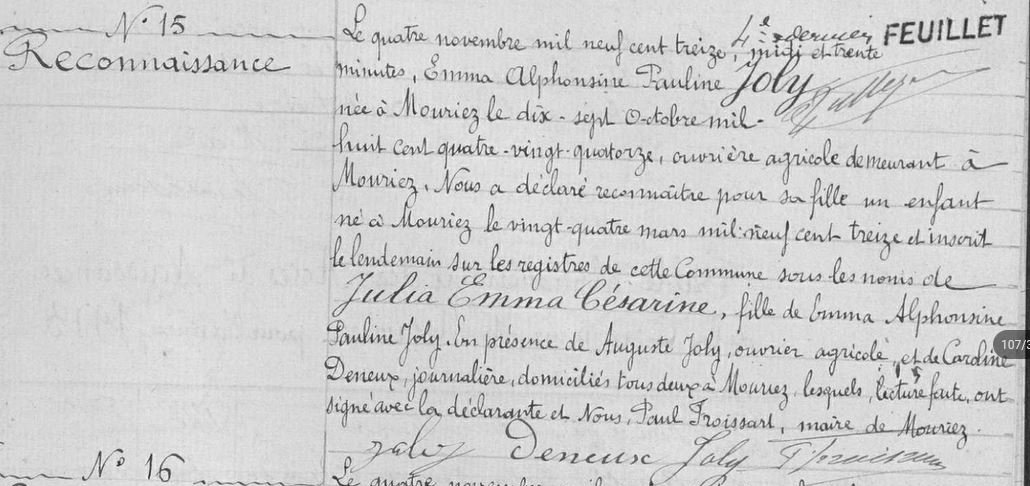 N° 15
Reconnaissance
4e et dernier FEUILLET
Le quatre novembre mil neuf cent treize, midi et trente
minutes, Emma Alphonsine Pauline Joly
née à Mouriez le dix-sept Octobre mil-
huit cent quatre-vingt-quatorze, ouvrière agricole demeurant à
Mouriez. Nous a déclaré reconnaître pour sa fille un enfant
né à Mouriez le vingt-quatre mars mil-neuf cent treize et inscrit
le lendemain sur les registres de cette Commune sous les noms de
Julia Emma Césarine, fille de Emma Alphonsine
Pauline Joly. En présence de Auguste Joly, ouvrier agricole, et de Caroline
Deneux, journalière, domiciliés tous deux à Mouriez, lesquels, lecture faite, ont
signé avec la déclarante et Nous, Paul Froissart, maire de Mouriez.
Joly Deneux Joly P Froissart
N° 16
Le quatre novembre
107/3